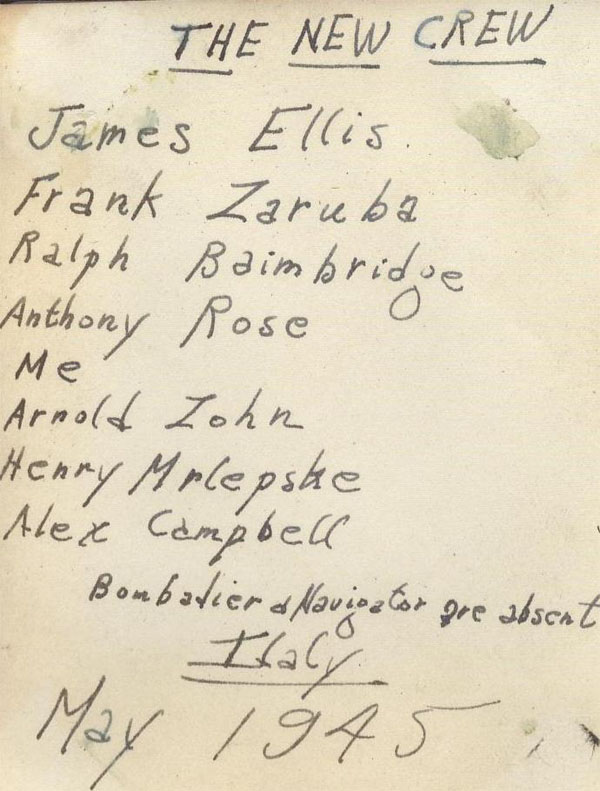 THE NEW CREW
James Ellis.
Frank Zaruba
Ralph Baimbridge
Anthony Rose
Me
Arnold Zohn
Henry Mrlepske
Alex Campbell
Bombadier & Navigator are absent
Italy
May 1945